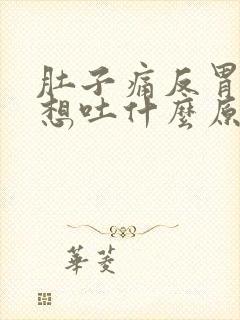 肚子痛反胃
想吐什麼原
華菱